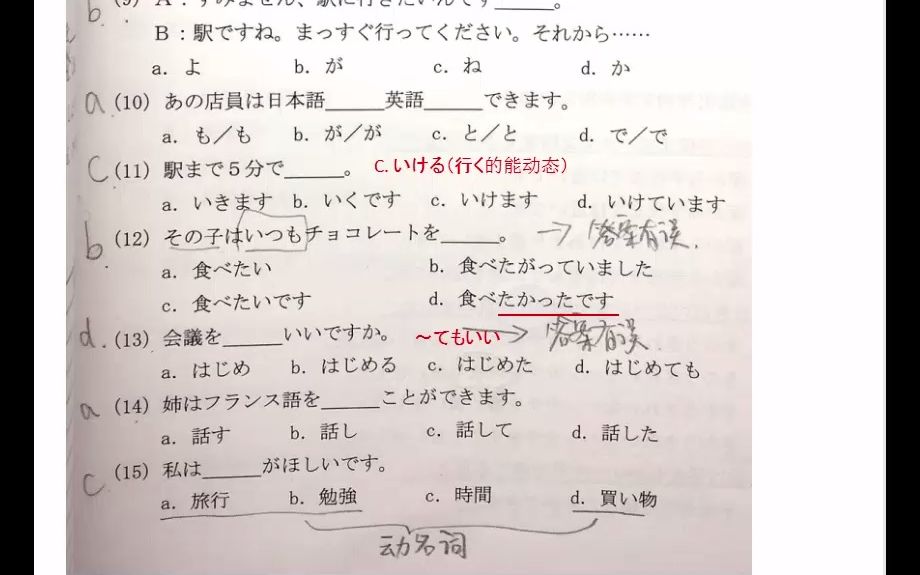 b.
(9) A：すみません、駅に行きたいんです______。
B：駅ですね。まっすぐ行ってください。それから……
a. よ b. が c. ね d. か
a (10) あの店員は日本語______英語______できます。
a. も／も b. が／が c. と／と d. で／で
C (11) 駅まで５分で______。 C.いける(行く的能动态)
a. いきます b. いくです c. いけます d. いけています
b (12) その子はいつもチョコレートを______。 → 答案有误.
a. 食べたい b. 食べたがっていました
c. 食べたいです d. 食べたかったです
d. (13) 会議を______いいですか。 ～てもいい → 答案有误
a. はじめ b. はじめる c. はじめた d. はじめても
a (14) 姉はフランス語を______ことができます。
a. 話す b. 話し c. 話して d. 話した
C (15) 私は______がほしいです。
a. 旅行 b. 勉強 c. 時間 d. 買い物
动名词